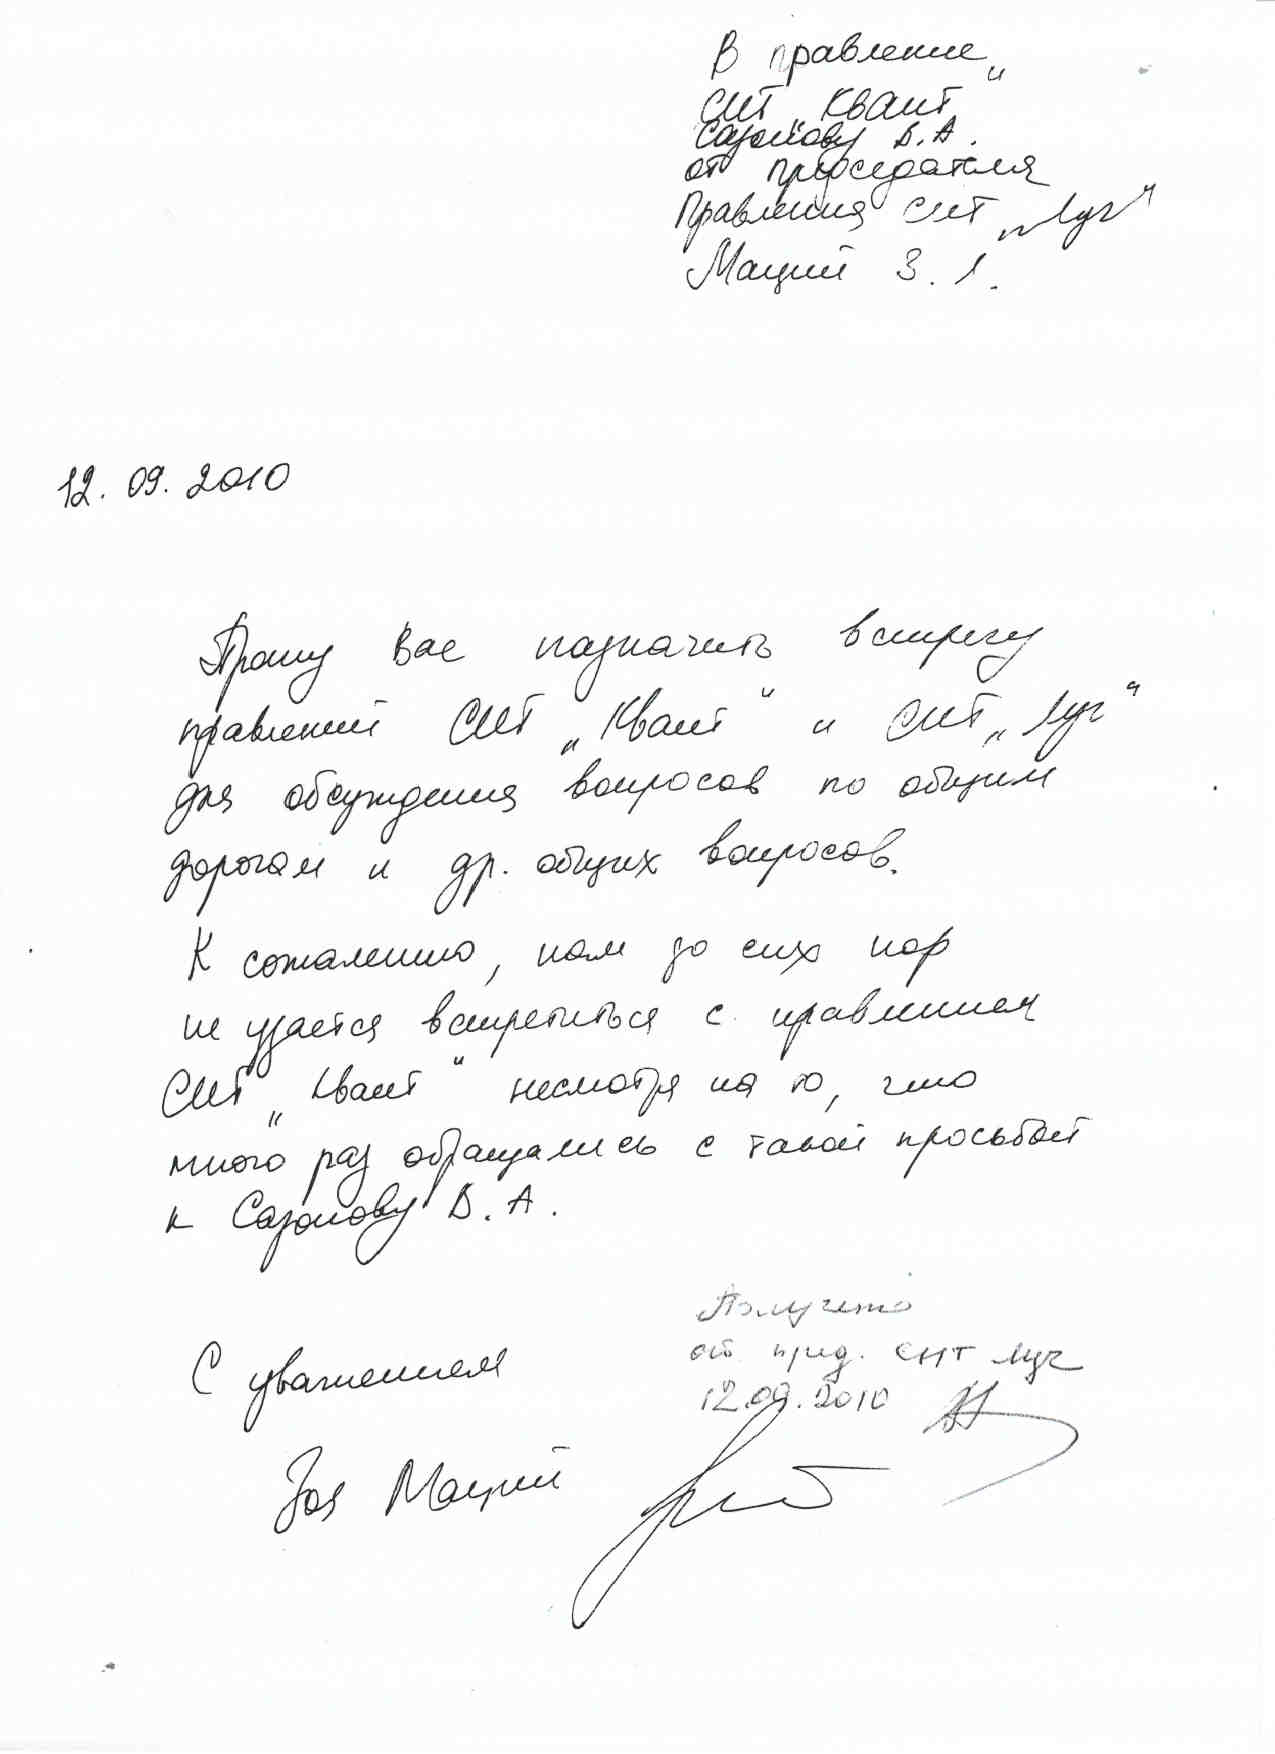 В правление
СНТ „Квант"
Сазонову В.А.
от председателя
Правления СНТ „Луч"
Маций З. Л.
12. 09. 2010
Прошу Вас назначить встречу
правлений СНТ „Квант" и СНТ „Луч"
для обсуждения вопросов по общим
дорогам и др. общих вопросов.
К сожалению, нам до сих пор
не удается встретиться с правлением
СНТ „Квант" несмотря на то, что
много раз обращались с такой просьбой
к Сазонову В. А.
Получено
от пред. СНТ Луч
12.09.2010
С уважением
Зоя Маций